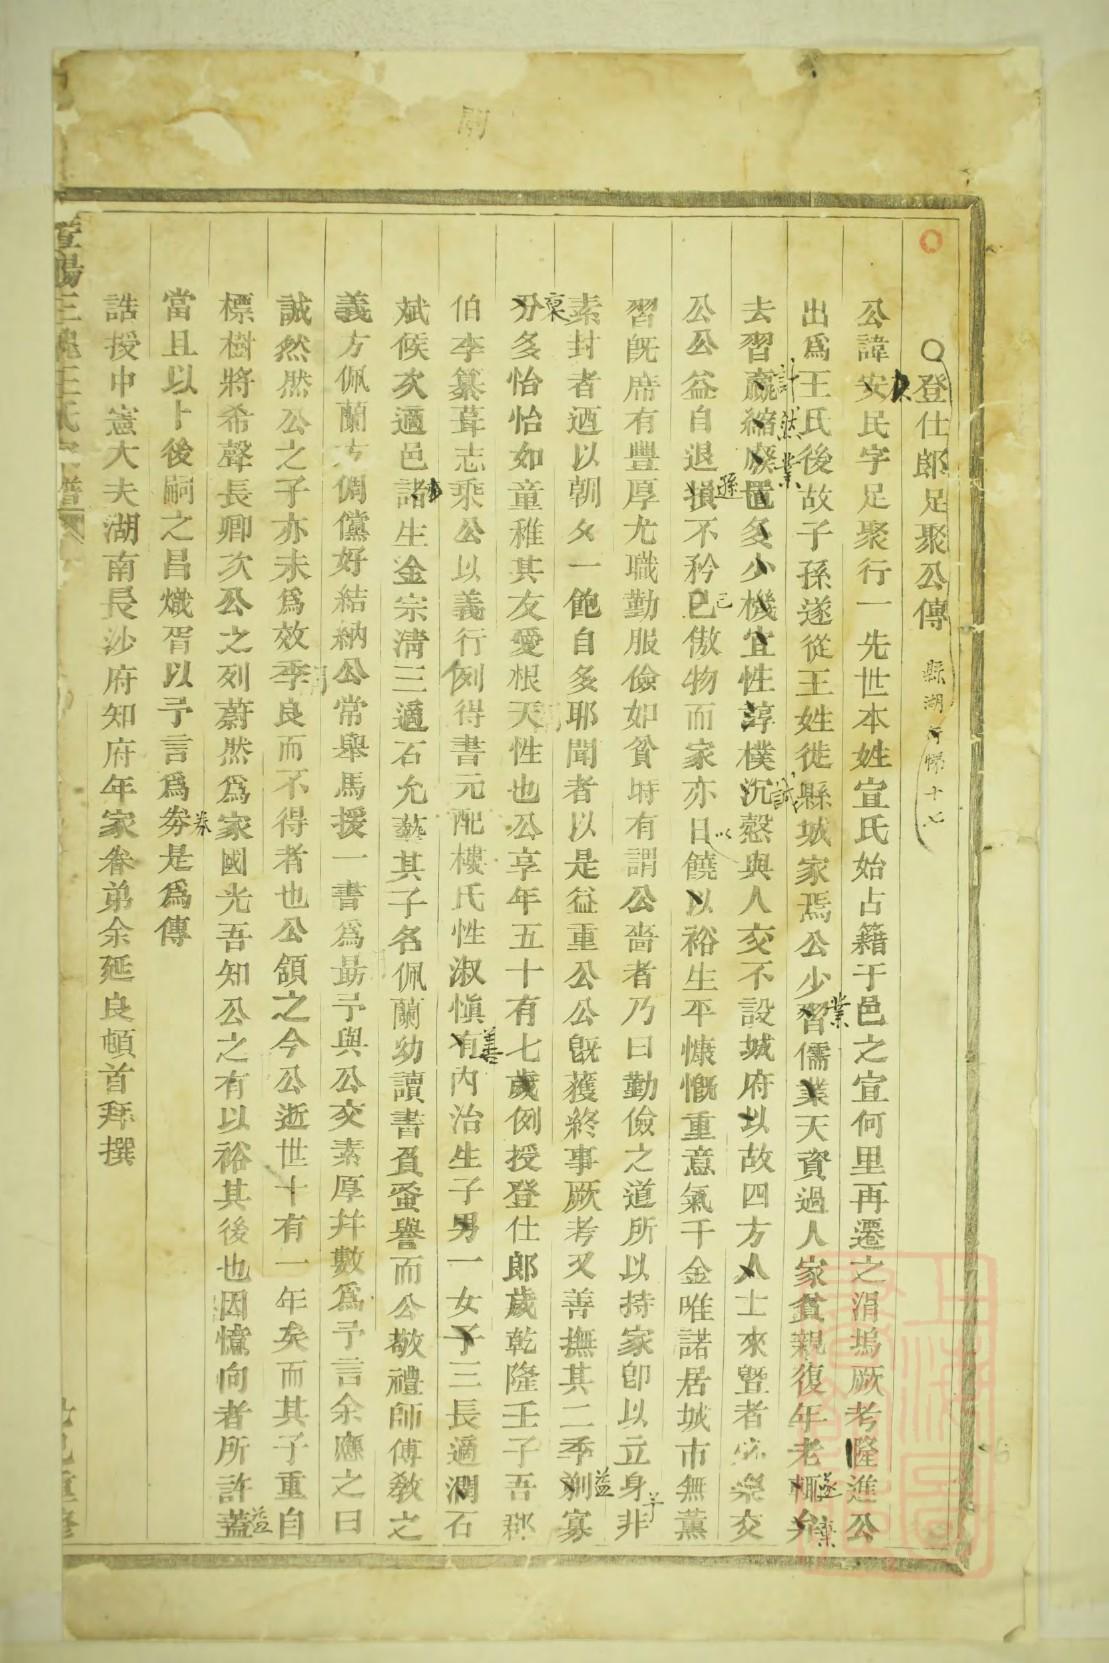 ○登仕郎足聚公傳
公諱安民字足聚行一先世本姓宣氏始占籍于邑之宣何里再遷之涓塢厥考隆進公
出爲王氏後故子孫遂從王姓徙縣城家焉公少習儒業天資過人家貧親復年老輒弁
去習贏縮廢置多少機宜性諄樸沉慤與人交不設城府以故四方人士來暨者樂交
公公益自退損不矜已傲物而家亦日饒以裕生平慷慨重意氣千金唯諾居城市無薰
習旣席有豐厚尤職勤服儉如貧時有謂公嗇者乃曰勤儉之道所以持家卽以立身非
素封者迺以朝夕一飽自多耶聞者以是益重公公旣獲終事厥考又善撫其二季剃寡
分多怡怡如童稚其友愛根天性也公享年五十有七歲例授登仕郎歲乾隆壬子吾郡
伯李纂葺志乘公以義行例得書元配樓氏性淑愼有內治生子男一女子三長適澗石
斌候次適邑諸生金宗淸三適石允藝其子名佩蘭幼讀書負蜚譽而公敬禮師傅敎之
義方佩蘭方倜儻好結納公常舉馬援一書爲勗予與公交素厚幷數爲予言余應之曰
誠然然公之子亦未爲效季良而不得者也公頷之今公逝世十有一年矣而其子重自
標樹將希聲長卿次公之列蔚然爲家國光吾知公之有以裕其後也因憶向者所許蓋
當且以卜後嗣之昌熾胥以予言爲劵是爲傳
誥授中憲大夫湖南長沙府知府年家眷弟余延良頓首拜撰